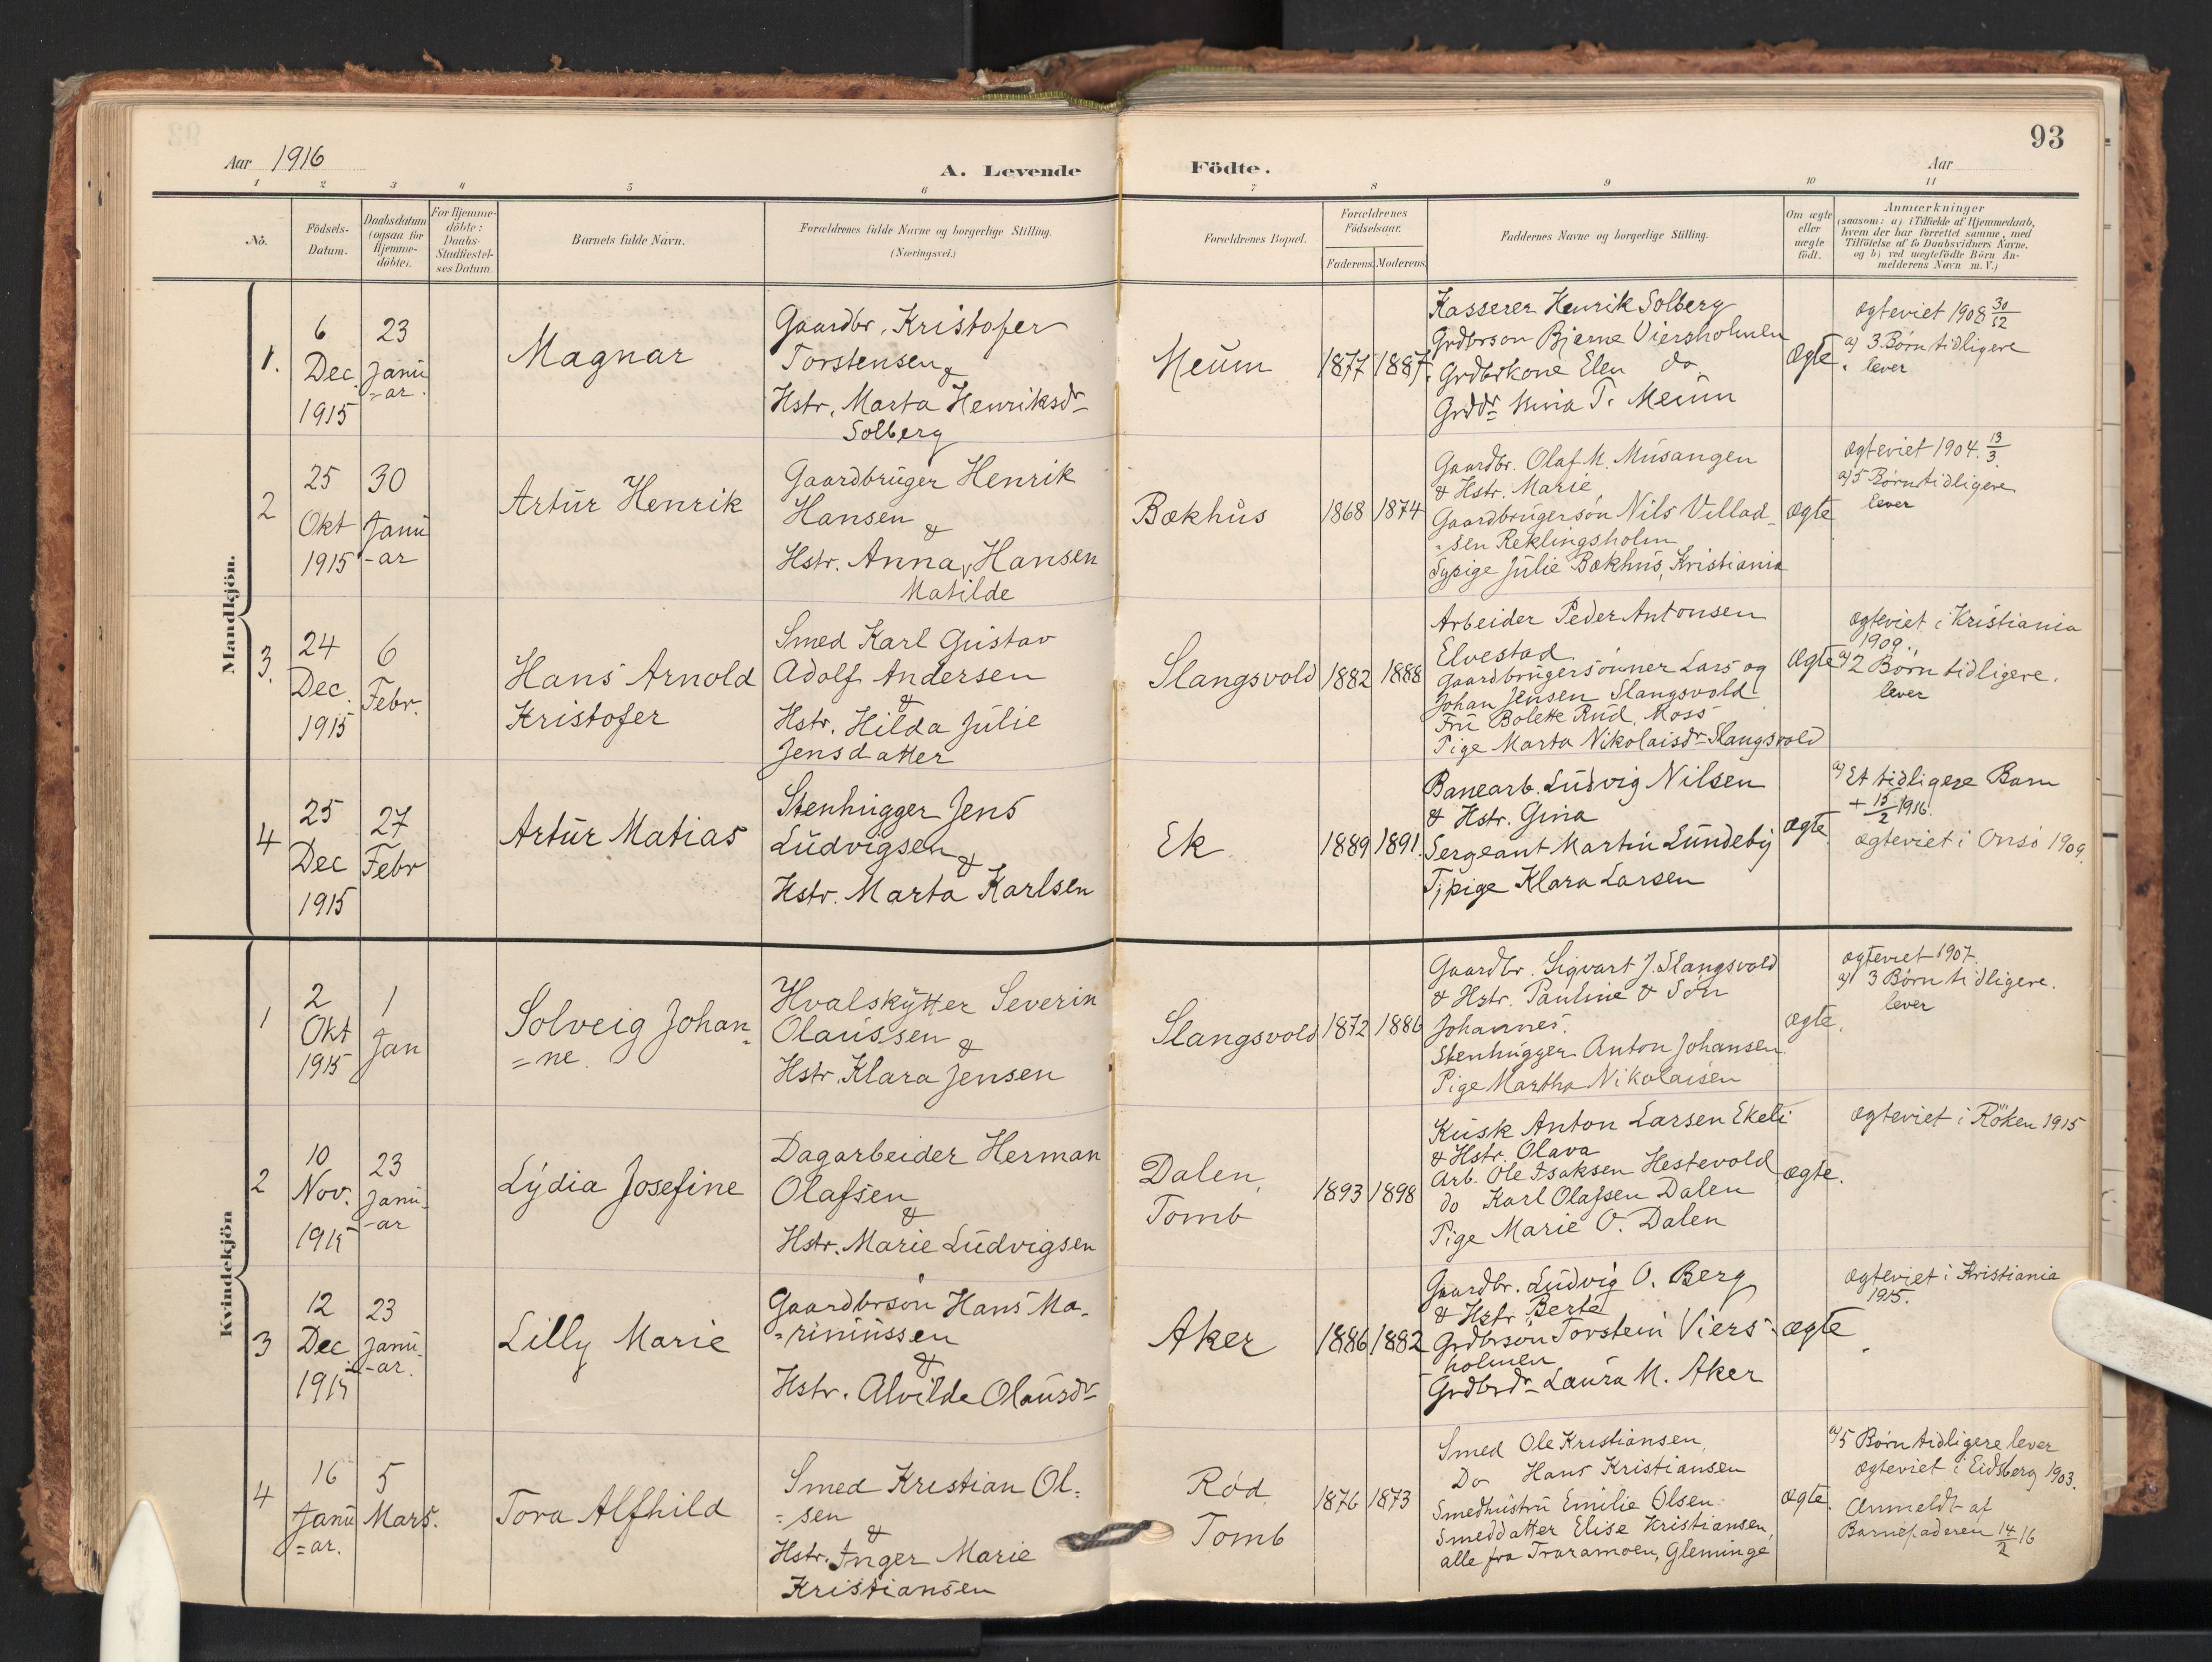 93
Aar 1916
A. Levende Födte.
Aar
1 2 3 4 5 6 7 8 9 10 11
No.
Födsels-
Datum.
Daabsdatum
(ogsaa for
Hjemme-
döbte).
For Hjemme-
döbte:
Daabs-
Stadfæstel-
ses Datum.
Barnets fulde Navn.
Forældrenes fulde Navne og borgerlige Stilling.
(Næringsvei.)
Forældrenes Bopæl.
Forældrenes
Fødselsaar.
Faderens. Moderens.
Faddernes Navne og borgerlige Stilling.
Om ægte
eller
uægte
født.
Anmærkninger
(saasom: a) i Tilfælde af Hjemmedaab,
hvem der har forrettet samme, med
Tilföielse af to Daabsvidners Navne,
og b) ved uægtefödte Börn An-
melderens Navn m. V.)
Mandkjön.
1.
6
Dec
1915
23
Janu
=ar.
Magnar
Gaardbr. Kristofer
Torstensen
&
Hstr. Marta Henriksdr
Solberg
Meum
1877 1887
Kasserer Henrik Solberg
Grdbrson Bjerne Viersholmen
Grdbrkone Elen do.
Grddr Mina T. Meum
Ægte.
ægteviet 1908 30/12
a) 3. Børn tidligere
lever
2
25
Okt
1915
30
Janu
-ar
Artur Henrik
Gaardbruger Henrik
Hansen
&
Hstr. Anna Hansen
Matilde
Bækhus
1868 1874
Gaardbr. Olaf M. Musangen
& Hstr. Marie
Gaardbrugersøn Nils Villad-
=sen Reklingsholm
Sypige Julie Bækhus, Kristiania
ægte
ægteviet 1904. 13/3.
a) 5 Børn tidligere
lever
3.
24
Dec.
1915
6
Febr.
Hans Arnold
Kristofer
Smed Karl Gustav
Adolf Andersen
&
Hstr. Hilda Julie
Jensdatter
Slangsvold
1882 1888
Arbeider Peder Antonsen
Elvestad
Gaardbrugersønner Lars og
Johan Jensen Slangsvold
Fru Bolette Rud, Moss
Pige Marta Nikolaisdr Slangsvold
Ægte
ægteviet i Kristiania
1909.
a) 2 Børn tidligere.
lever
4
25
Dec
1915
27
Febr
Artur Matias
Stenhugger Jens
Ludvigsen
&
Hstr. Marta Karlsen
Ek
1889 1891.
Banearb. Ludvig Nilsen
& Hstr. Gina
Sergeant Martin Lundeby
Tjpige Klara Larsen
ægte
a) Et tidligere Barn
+ 15/2 1916.
ægteviet i Onsö 1909.
Kvindekjön
1
2
Okt
1915
1
Jan
Solveig Johan-
=ne.
Hvalskytter Severin
Olaussen
&
Hstr. Klara Jensen
Slangsvold
1872 1886
Gaardbr. Sigvart J. Slangsvold
& Hstr. Pauline & Søn
Johannes.
Stenhugger Anton Johansen.
Pige Martha Nikolaisen
ægte.
ægteviet 1907.
a) 3 Børn tidligere.
lever
2
10
Nov.
1915
23
Janu-
-ar
Lydia Josefine
Dagarbeider Herman
Olafsen
&
Hstr. Marie Ludvigsen
Dalen,
Tomb
1893 1898
Kusk Anton Larsen Ekeli
& Hstr. Olava
Arb. Ole Isaksen Hestevold
do Karl Olafsen Dalen
Pige Marie O. Dalen
ægte.
ægteviet i Røken 1915
3
12
Dec
1915
23
Janu-
-ar.
Lilly Marie
Gaardbrsøn Hans Ma-
=rinussen
&
Hstr. Alvilde Olausdr
Aker
1886 1882
Gaardbr. Ludvig O. Berg
& Hstr. Berte
Grdbrson Torstein Viers-
holmen
Grdbrdr Laura M. Aker
ægte
ægteviet i Kristiania
1915.
4
16
Janu
=ar.
5
Mars.
Tora Alfhild
Smed Kristian Ol-
=sen
&
Hstr. Inger Marie
Kristiansen
Rød
Tomb
1876 1873
Smed Ole Kristiansen,
Do Hans Kristiansen
Smedhustru Emilie Olsen
Smeddatter Elise Kristiansen,
alle fra Traramoen, Gleminge
ægte.
a) 5 Børn tidligere lever
ægteviet i Eidsberg 1903.
Anmeldt af
Barnefaderen 14/2 16